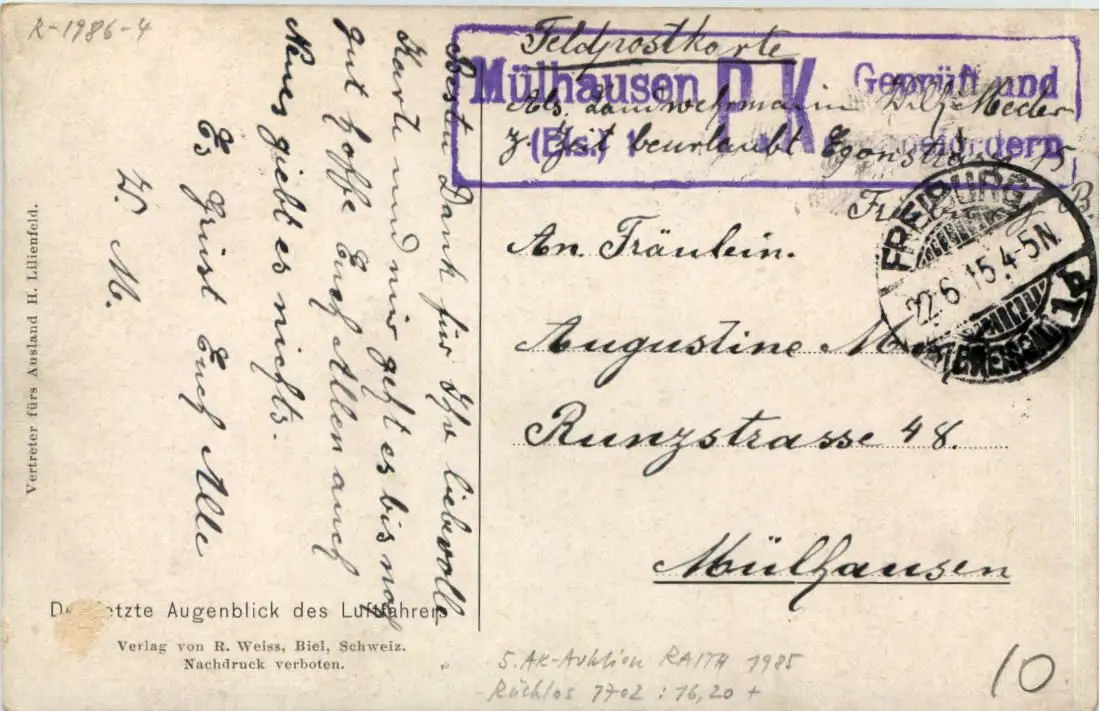 R-1986-4
Feldpostkarte
Mülhausen P.K. Geprüft und
(Els.) 1 befördern
Abs. Landwehrmann Wilh. Meder
z. Zeit beurlaubt Egonstraße 15,
Freiburg B.
FREIBURG
22.6.15.4-5N.
(BREISGAU) 1b
An Fräulein.
Augustine
Runzstrasse 48.
Mülhausen
Besten Dank für Ihr liebevolle
Karte und mir geht es bis noch
gut hoffe Euch Allen auch
Neues giebt es nichts.
Es Grüsst Euch Alle
W. M.
Vertreter fürs Ausland H. Lilienfeld.
Der letzte Augenblick des Luftfahrers
Verlag von R. Weiss, Biel, Schweiz.
Nachdruck verboten.
5. AK-Auktion RAITH 1985
Rücklos 7702 : 16,20 +
10